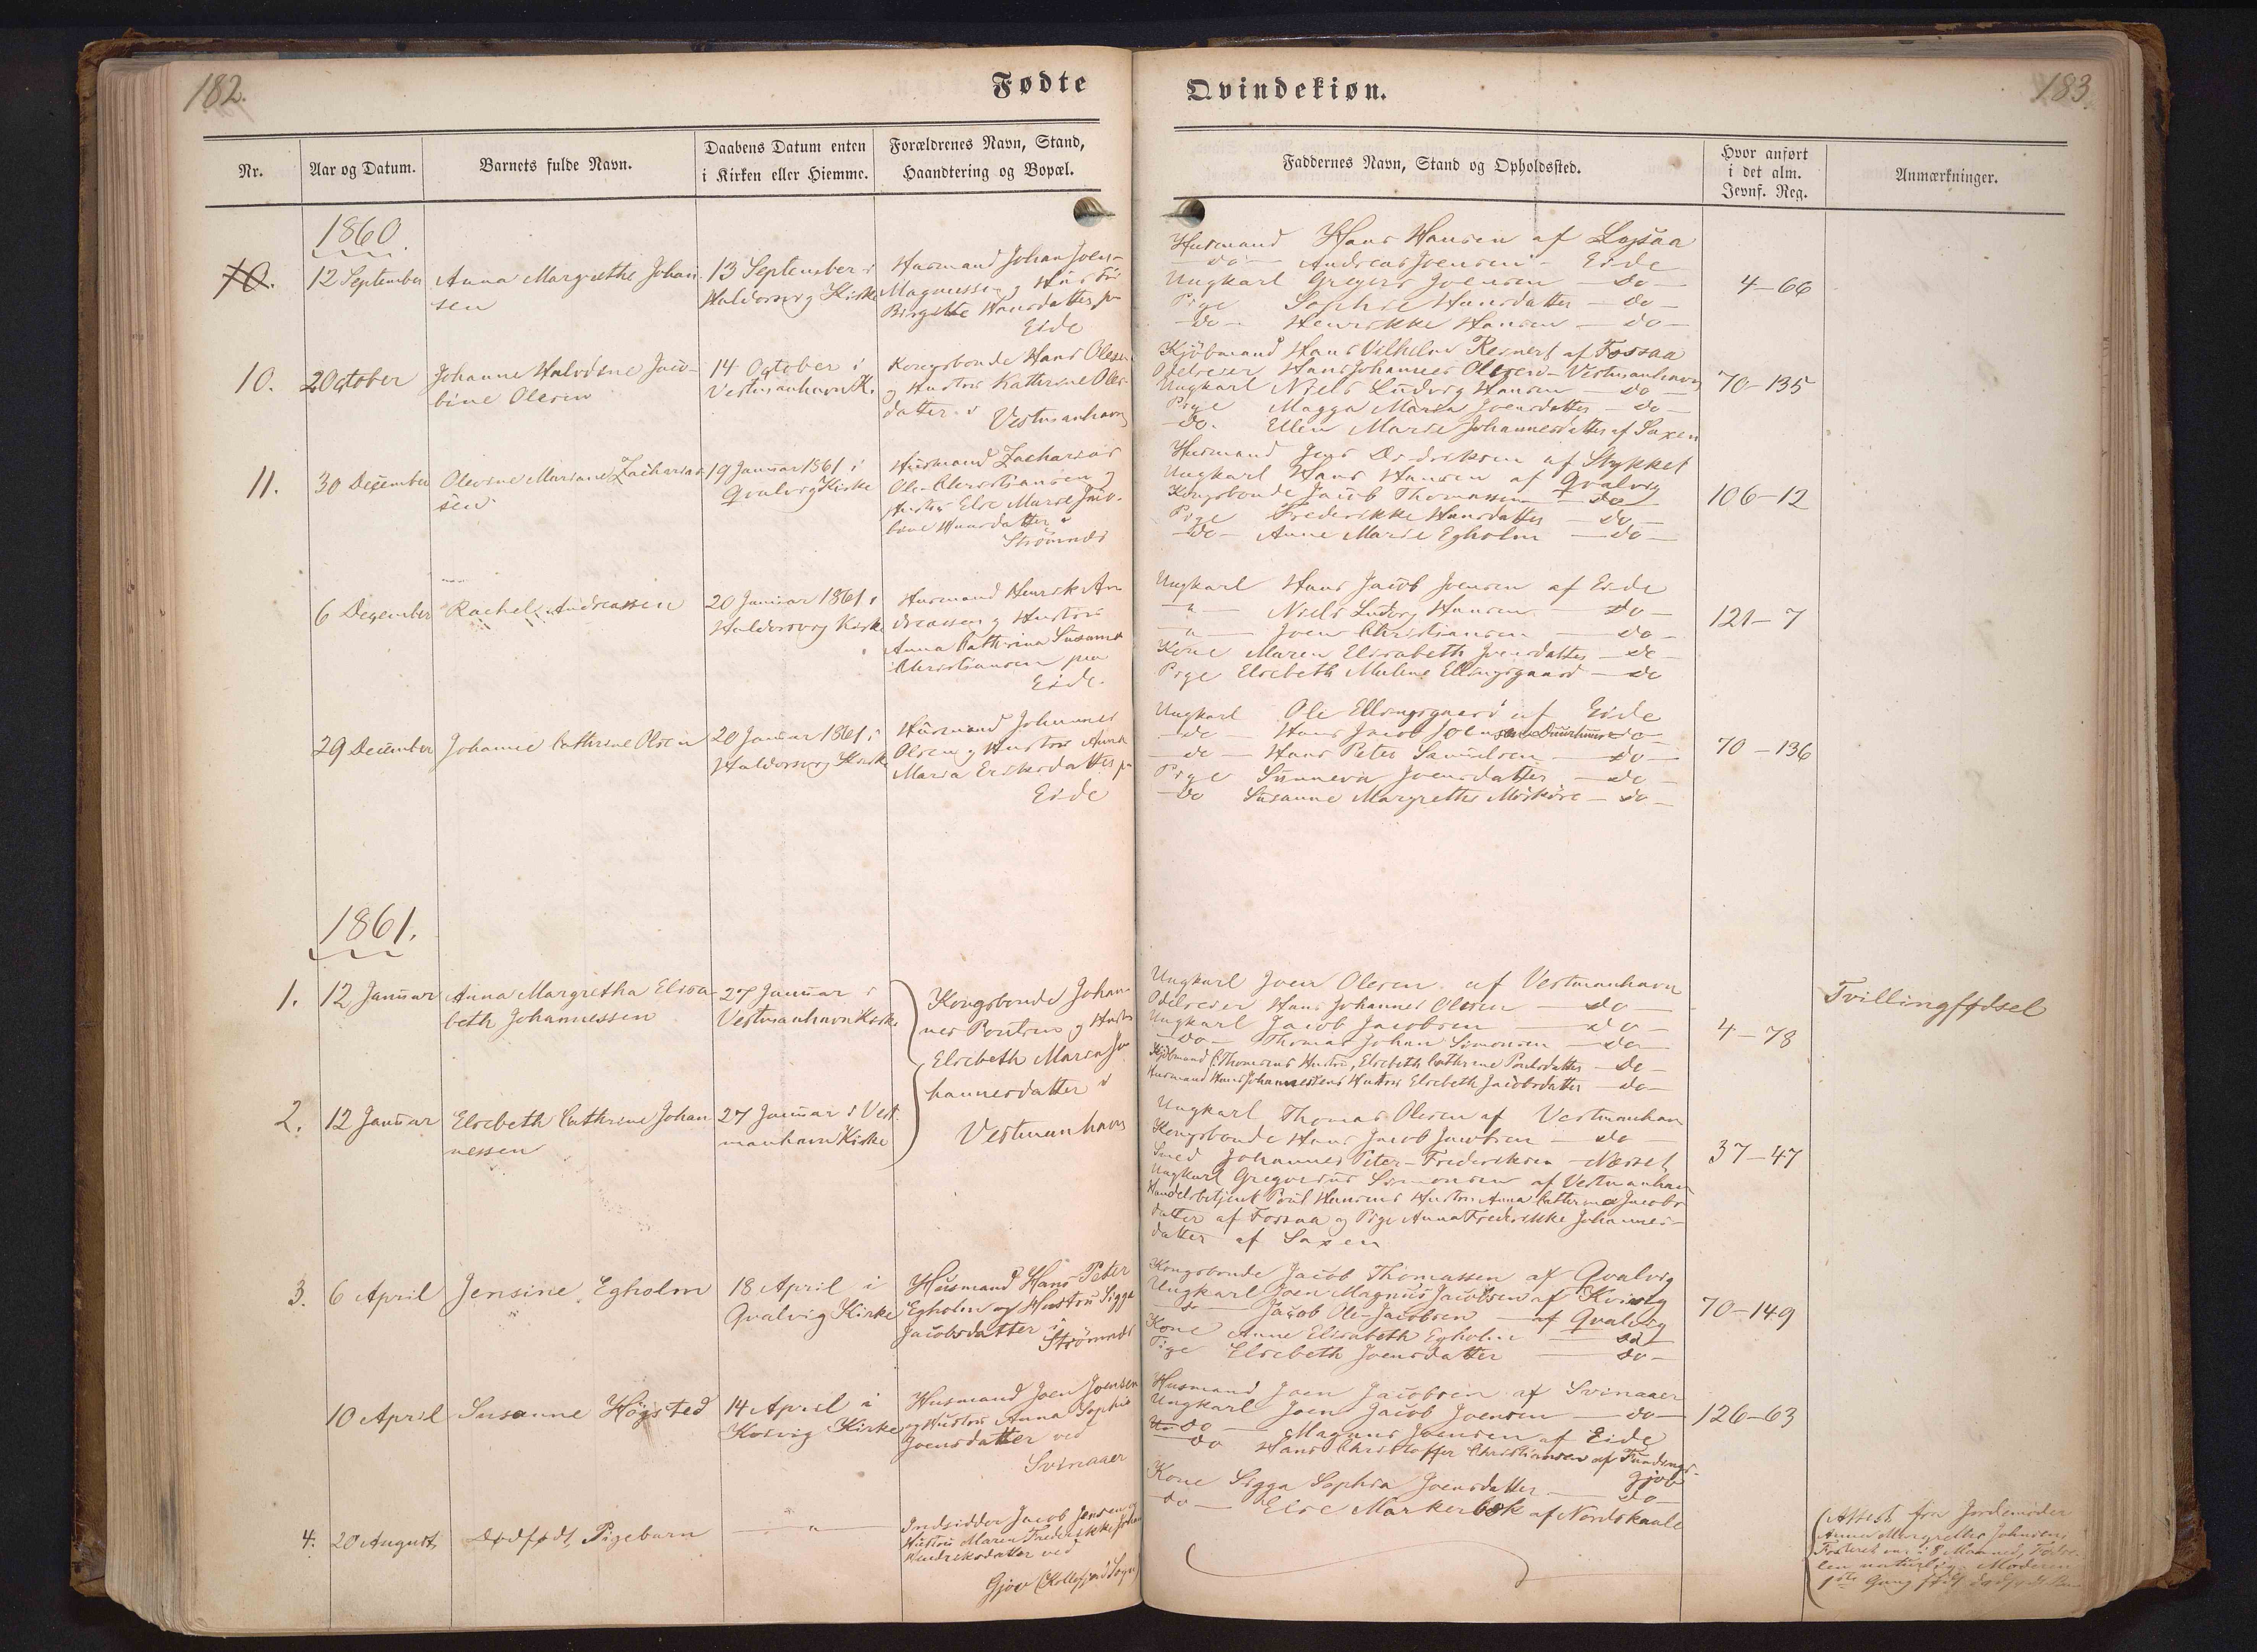 182.
Fødte
Nr.
Aar og Datum.
Barnets fulde Navn.
Daabens Datum enten
i Kirken eller Hiemme.
Forældrenes Navn, Stand,
Haandtering og Bopæl.
1860.
10.
12 September
Anna Margrethe Johan
sen
13 September i
Haldorsvig Kirke
Husmand Johan Joen-
Magnussen og Hustru
Birgitte Hansdatter paa
Eide
10.
2 October
Johanne Jaco-
bine Olesen
14 October i
Vestmanhavn K.
Kongsbonde Hans Olesen
og Hustru Kathrine Oles-
datter i Vestmanhavn
11.
30 December
Olevine Mariane Zacharias-
sen
19 Januar 1861 i
Qvalvig Kirke
Husmand Zacharias
Ole Christiansen og
Hustru Else Marie Jaco-
bine Hansdatter i
Strömnæs
6 December
Rachel Andreassen
20 Januar 1861 i
Haldorsvig Kirke
Husmand Henrik An
dreassen og Hustru
Anna Cathrina Susanna
Christiansen paa
Eide.
29 December
Johanne Cathrine Olsen
20 Januar 1861 i
Haldorsvig Kirke
Husmand Johannes
Olsen og Hustru Anna
Maria Eriksdatter p
Eide
1861.
1.
12 Januar
Anna Margretha Elisa
beth Johannessen
27 Januar i
Vestmanhavn Kirke
Kongsbonde Johan-
nes Poulsen og Hustru
Elsebeth Maria Jo
hannesdatter i
Vestmanhavn
2.
12 Januar
Elsebeth Cathrine Johan
nessen
27 Januar i Vest
manhavn Kirke
3.
6 April
Jensine Egholm
18 April i
Qvalvig Kirke
Husmand Hans Peter
Egholm og Hustru Sigga
Jacobsdatter i
Strömnæs
10 April
Susanne Högsted
14 April i
Kirke
Husmand Joen Joensen
og Hustru Anna Sophie
Joensdatter ved
Svinaaer
4.
20 August
Dødfødt Pigebarn
"
Indsidder Jacob Jensen og
Hustru Maren Frederikke
Hendriksdatter ved
Gjov (Kollefjord Sogn)
183
Qvindekiøn.
Faddernes Navn, Stand og Opholdssted.
Hvor anført
i det alm.
Jevnf. Reg.
Anmærkninger.
Husmand Hans Hansen af
do Andreas Joensen - Eide
Ungkarl Gregers Joensen - do -
Pige Sophie Hansdatter - do -
do - Henrikke Hansen - do -
4-66
Kjöbmand Hans Vilhelm Reinert af Fossaa
Odelseier Hans Johannes Olesen - Vestmanhavn
Ungkarl Niels Ludvig Hansen do -
Pige Magga Maria Joensdatter - do -
do. Ellen Marie Johannesdatter af Saxen
70-135
Husmand Jens Dideriksen af Stykket
Ungkarl Hans Hansen af Qvalvig
Kongsbonde Jacob Thomassen - do
Pige Frederikke Hansdatter - do -
do - Anne Marie Egholm - do -
106-12
Ungkarl Hans Jacob Joensen af Eide
" Niels Ludvig Hansen - do -
" Joen Christiansen - do -
Kone Maren Elisabeth Joensdatter - do
Pige Elsebeth Malene Ellingsgaard - do
121-7
Ungkarl Ole Ellingsgaard af Eide
do - Hans Jacob Joensen do
do - Hans Peter Samuelsen - do -
Pige Sunneva Joensdatter - do -
do Susanne Margrethe Mörköre - do -
70-136
Ungkarl Joen Olesen af Vestmanhavn
Odelseier Hans Johannes Olesen do -
Ungkarl Jacob Jacobsen - do -
do - Thomas Johan Simonsen - do -
Kjöbmand C. Thomsens Hustru, Elsebeth Cathrine Poulsdatter - do -
Husmand Hans Johannessens Hustru Elsebeth Jacobsdatter - do -
4-78
Tvillingfødsel
Ungkarl Thomas Olesen af Vestmanhavn
Kongsbonde Hans Jacob Jacobsen - do -
Smed Johannes Peter Frederiksen -
Ungkarl Gregorius Simonsen af Vestmanhavn
Handelsbetjent Poul Hansens Hustru Anna Cathrina Jacobs
datter af Fossaa og Pige Anna Frederikke Johannes-
datter af Saxen
37-47
Kongsbonde Jacob Thomassen af Qvalvig
Ungkarl Joen Magnus Jacobsen af
do Jacob Ole Jacobsen - af Qvalvig
Kone Anne Elisabeth Egholm - do
Pige Elsebeth Joensdatter - do -
70-149
Husmand Joen Jacobsen af Svinaaer
Ungkarl Joen Jacob Joensen - do -
do - Magnus Joensen af Eide
do Hans Christoffer Christiansen af Fundings-
gjov
Kone Sigga Sophia Joensdatter - do -
do - Else Markerbek af Nordskaale
126-63
(Attest fra Jordemoder
Anna Margrethe Johnsen
Fosteret var i 8 Maaned, Føds-
len naturlig, Moderen
1ste Gang født